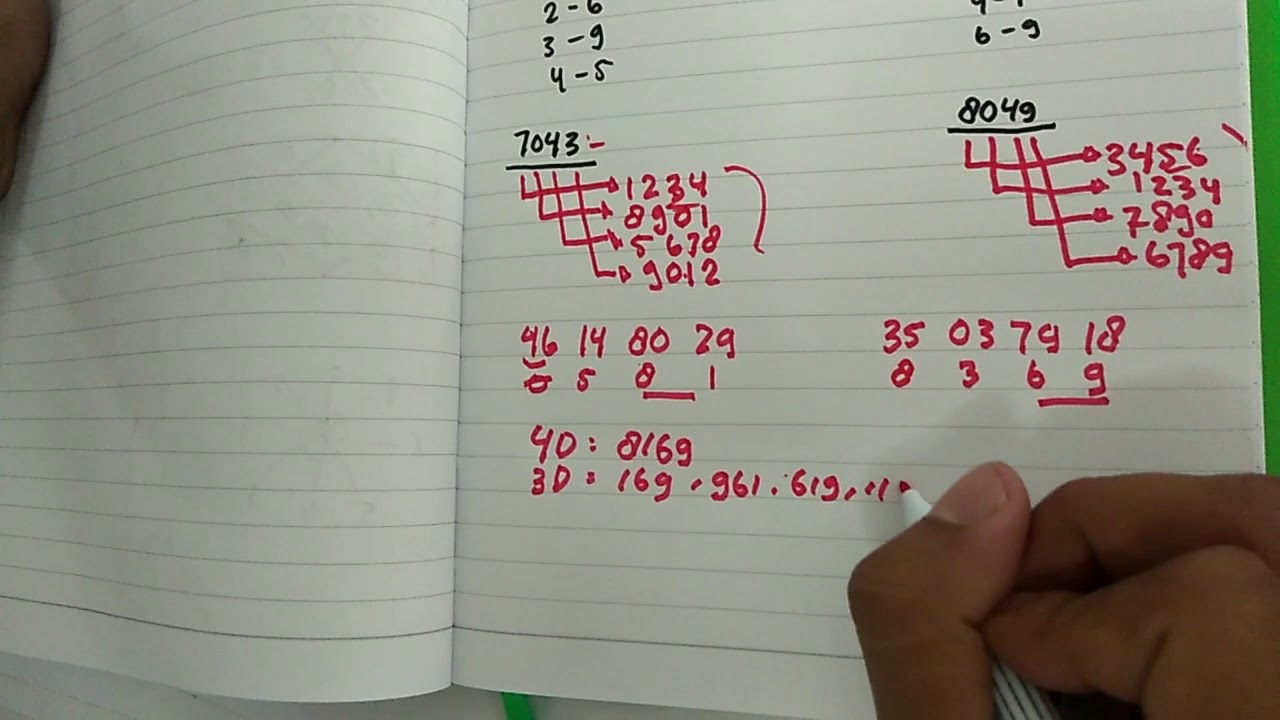 2 - 6
3 - 9
4 - 5
6 - 9
7043 :-
1234
8901
5678
9012
8049
3456
1234
7890
6789
46 14 80 29
5 8 1
35 03 79 18
8 3 6 9
4D : 8169
3D : 169 . 961 . 619 .